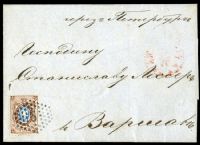 через Петербургъ
Господину
Станиславу Лессеръ
въ Варшавѣ